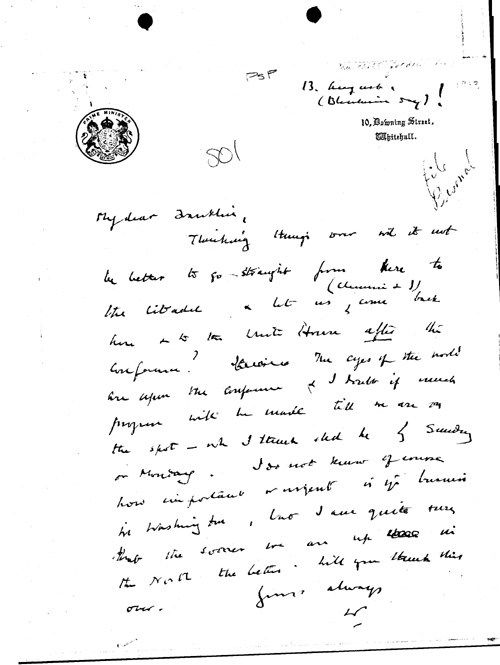 PSF
13. August.
(Blenheim Day)!
10, Downing Street,
Whitehall.
PRIME MINISTER
801
file
Personal
My dear Franklin,
Thinking things over wd it not
be better to go straight from here to
(Clemmie & I)
the Citadel & let us come back
here & to the White House after the
Conference? The eyes of the world
are upon the conference & I doubt if much
progress will be made till we are on
the spot – wh I think shd be by Sunday
or Monday. I do not know of course
how important or urgent is yr business
in Washington, but I am quite sure
that the sooner we are up in
the North the better. Will you think this
over.
Yours always
W